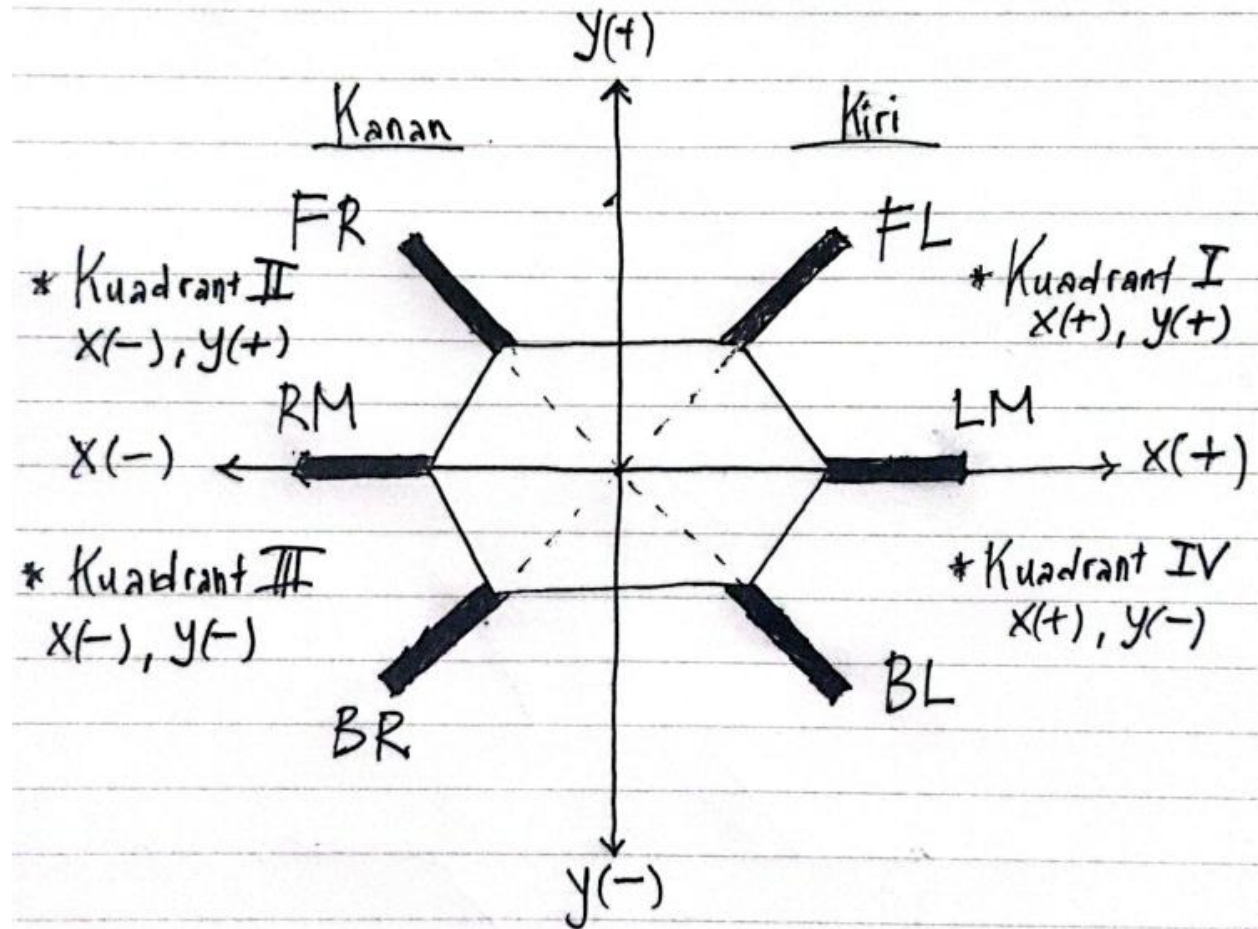 y(+)
Kanan
Kiri
FR
FL
* Kuadrant II
x(-), y(+)
* Kuadrant I
x(+), y(+)
RM
LM
x(-)
x(+)
* Kuadrant III
x(-), y(-)
* Kuadrant IV
x(+), y(-)
BR
BL
y(-)